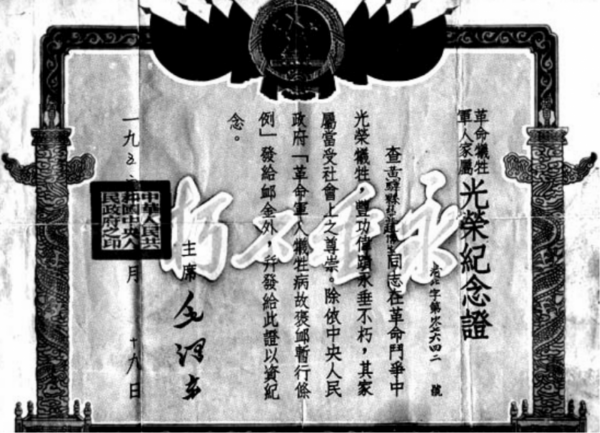 革命犧牲
軍人家屬
光榮紀念證
字第 六四二 號
查 同志在革命鬥爭中
光榮犧牲，豐功偉蹟永垂不朽，其家
屬當受社會上之尊崇。除依中央人民
政府「革命軍人犧牲病故褒卹暫行條
例」發給卹金外，并發給此證以資紀
念。
永垂不朽
主席 毛澤東
一九五 月 日
中華人民共
和國中央人
民政府之印